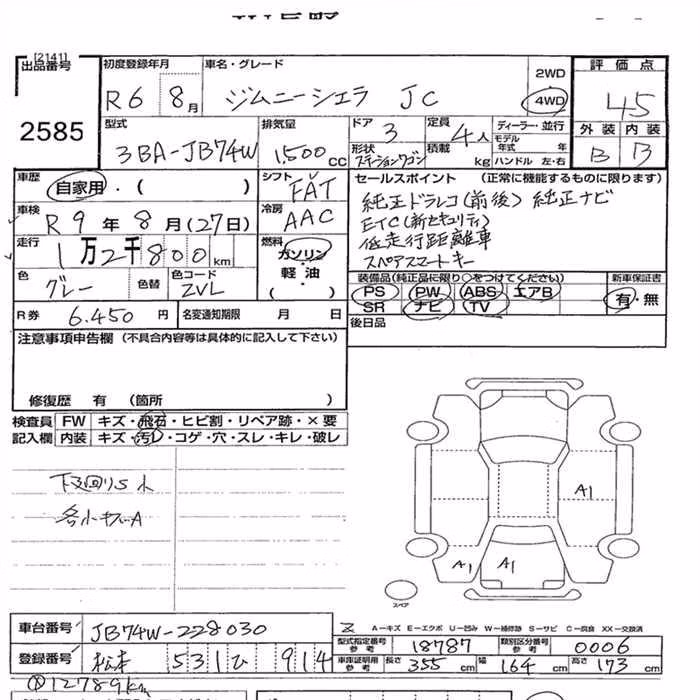 [2141]
出品番号
2585
初度登録年月
R6 8月
車名・グレード
ジムニーシエラ JC
2WD
4WD
評価点
45
外装 内装
B B
型式
3BA-JB74W
排気量
1,500cc
ドア
3
形状
ステーションワゴン
定員
4人
積載 kg
ディーラー・並行
モデル年式 年
ハンドル 左・右
車歴
自家用・( )
車検
R9年8月(27日)
走行
1万2千800km
色
グレー
色替
色コード
ZVL
シフト
FAT
冷房
AAC
燃料
ガソリン
軽・油
( )
セールスポイント (正常に機能するものに限ります)
純正ドラレコ(前後) 純正ナビ
ETC(新セキュリティ)
低走行距離車
スペアスマートキー
装備品(純正品に限り○をつけてください)
PS PW ABS エアB
SR ナビ TV
新車保証書
有・無
R券 6.450円
名変通知期限 月 日
後日品
注意事項申告欄(不具合内容等は具体的に記入して下さい)
修復歴 有 (箇所 )
検査員 FW キズ・飛石・ヒビ割・リペア跡・×要
記入欄 内装 キズ・汚レ・コゲ・穴・スレ・キレ・破レ
下廻りS小
各小キズA
A1
A1
A1
スペア
車台番号 JB74W-228030
登録番号 松本 531 ひ 914
A-キズ E-エクボ U-凹み W-補修跡 S-サビ C-腐食 XX-交換済
型式指定番号 18787 類別区分番号 0006
車庫証明用参考 長さ 355cm 幅 164cm 高さ 173cm
12789km